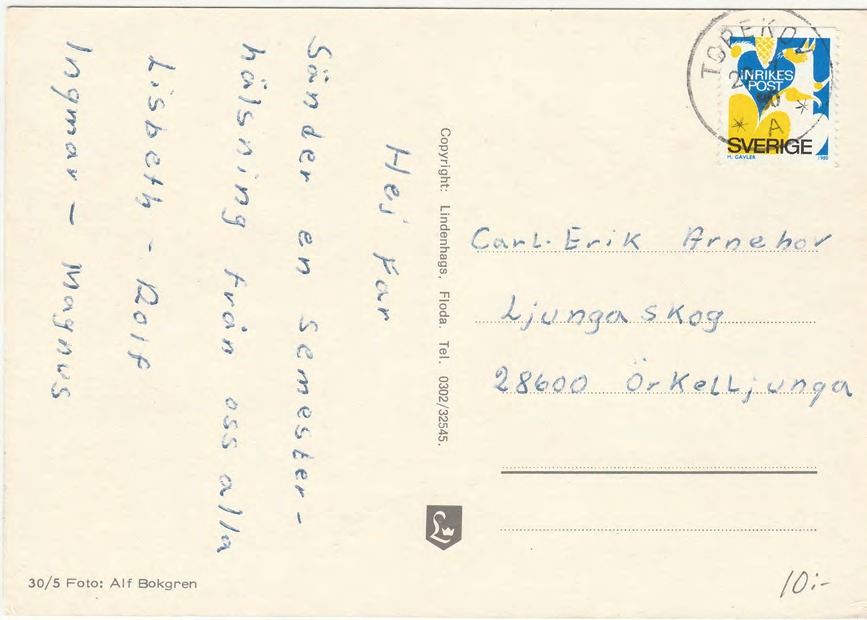 Hej Far
Sänder en semester-
hälsning från oss alla
Lisbeth - Rolf
Ingmar - Magnus
Copyright: Lindenhags, Floda. Tel. 0302/32545.
30/5 Foto: Alf Bokgren
TOREKOV
A
INRIKES
POST
SVERIGE
M. GAVLER 1980
Carl-Erik Arnehov
Ljungaskog
28600 Örkelljunga
L
10:-